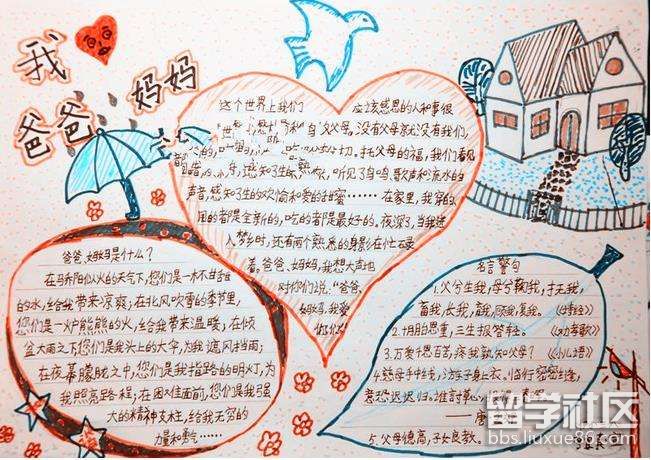 我
爸爸
妈妈
这个世界上我们 应该感恩的人和事很
父母,没有父母就没有我们,
切。托父母的福,我们看见
听见了鸟鸣、歌声和流水的
声音,感知了生的欢愉和爱的甜蜜……在家里,我穿的、
用的都是全新的,吃的都是最好的。夜深了,当我进
入梦乡时,还有两个熟悉的身影在忙碌
着。爸爸、妈妈,我想大声地
对你们说:“爸爸、
妈妈,我爱
你们!
爸爸、妈妈是什么?
在骄阳似火的天气下,您们是一杯甘甜
的水,给我带来凉爽,在北风吹雪的季节里,
您们是一炉熊熊的火,给我带来温暖,在倾
盆大雨之下,您们是我头上的大伞,为我遮风挡雨;
在夜幕朦胧之中,您们是我指路的明灯,为
我照亮路程;在困难面前,您们是我强
大的精神支柱,给我无穷的
力量和勇气……
名言警句
1.父兮生我,母兮鞠我,抚我,
畜我,长我,育我,顾我,复我。
2.十月胎恩重,三生报答轻。《劝孝歌》
3.万爱千恩百苦,疼我孰知父母?《小儿语》
4.慈母手中线,游子身上衣。临行密密缝,
意恐迟迟归。
5.父母德高,子女良教。
留学社区
bbs.liuxue86.com